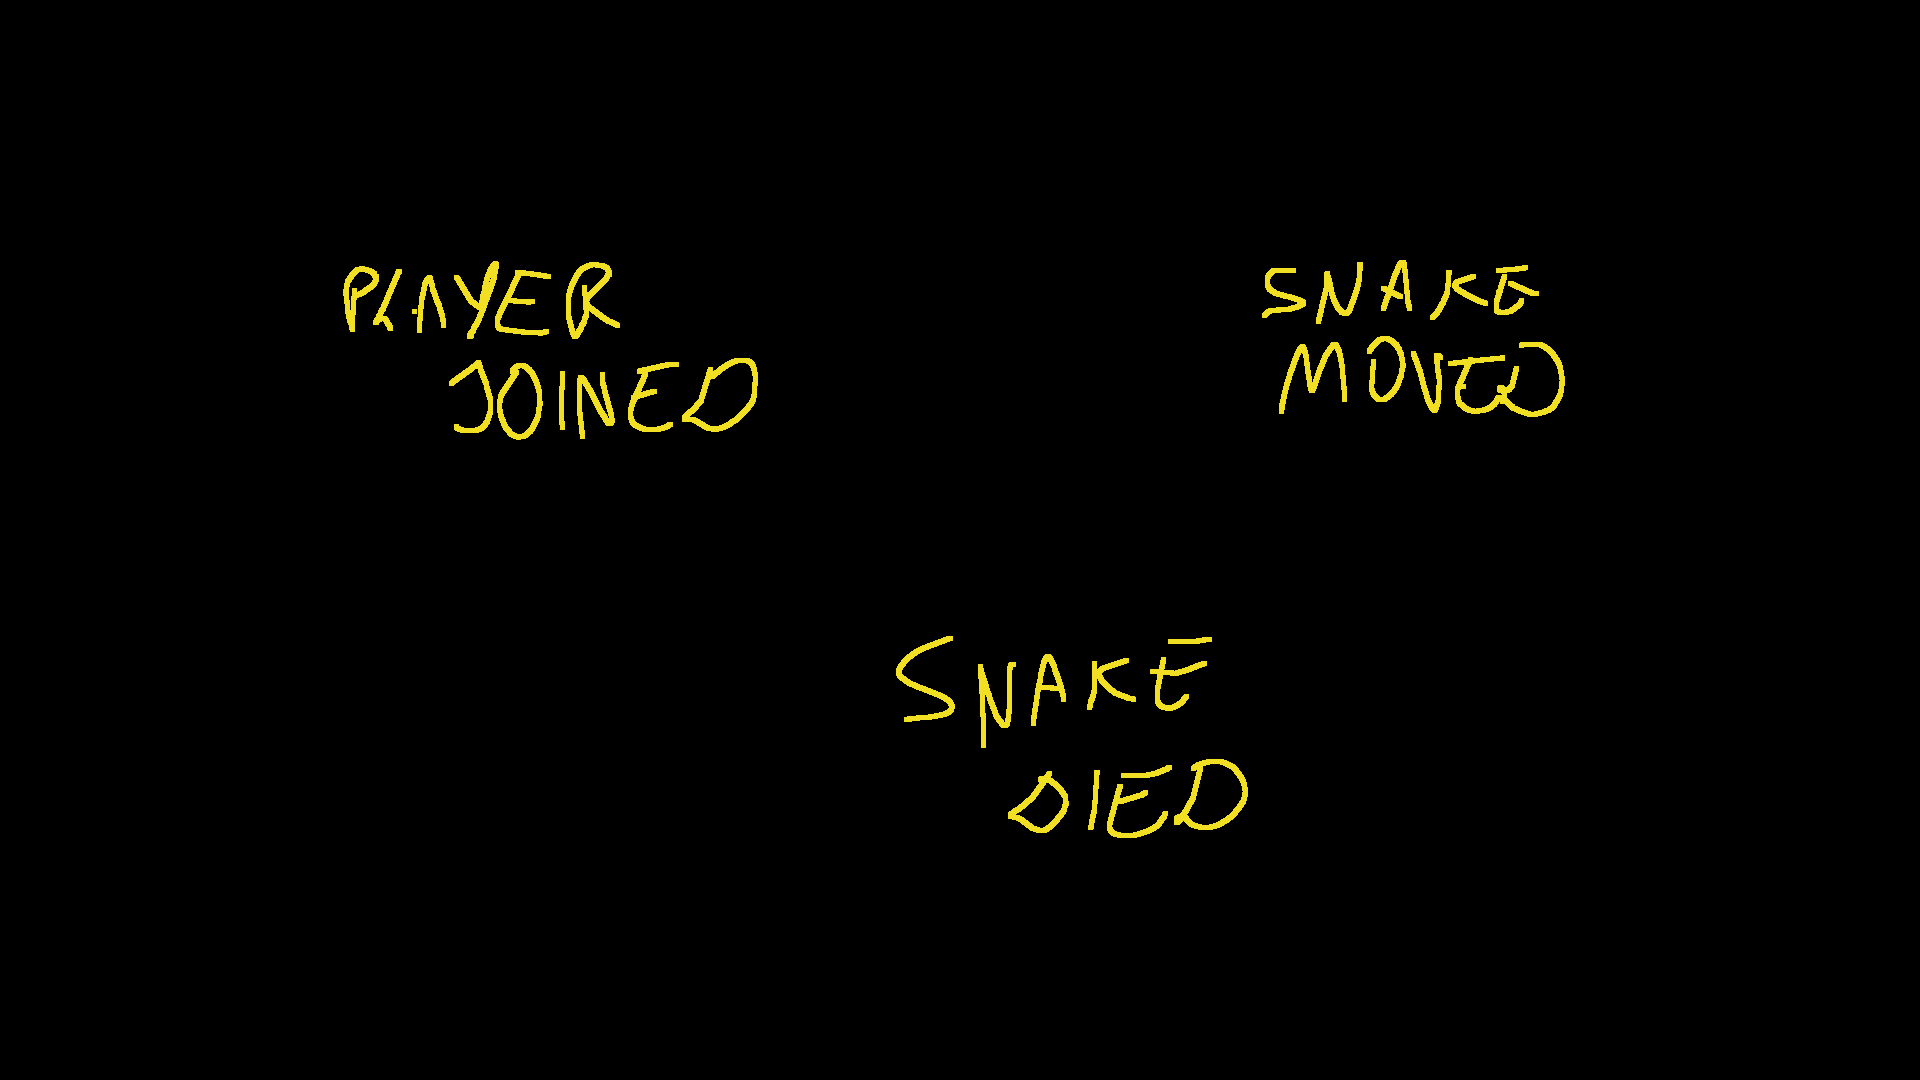 PLAYER
JOINED
SNAKE
MOVED
SNAKE
DIED